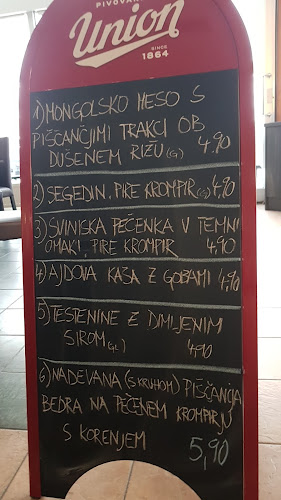 PIVOVARNA
Union
SINCE
1864
1) MONGOLSKO MESO S
PIŠČANČJIMI TRAKCI OB
DUŠENEM RIŽU (G) 4.90
2) SEGEDIN, PIRE KROMPIR (G) 4,90
3) SVINJSKA PEČENKA V TEMNI
OMAKI, PIRE KROMPIR 4,90
4) AJDOVA KAŠA Z GOBAMI 4,90
5) TESTENINE Z DIMLJENIM
SIROM (G,L) 4,90
6) NADEVANA (S KRUHOM) PIŠČANČJA
BEDRA NA PEČENEM KROMPIRJU
S KORENJEM 5,90